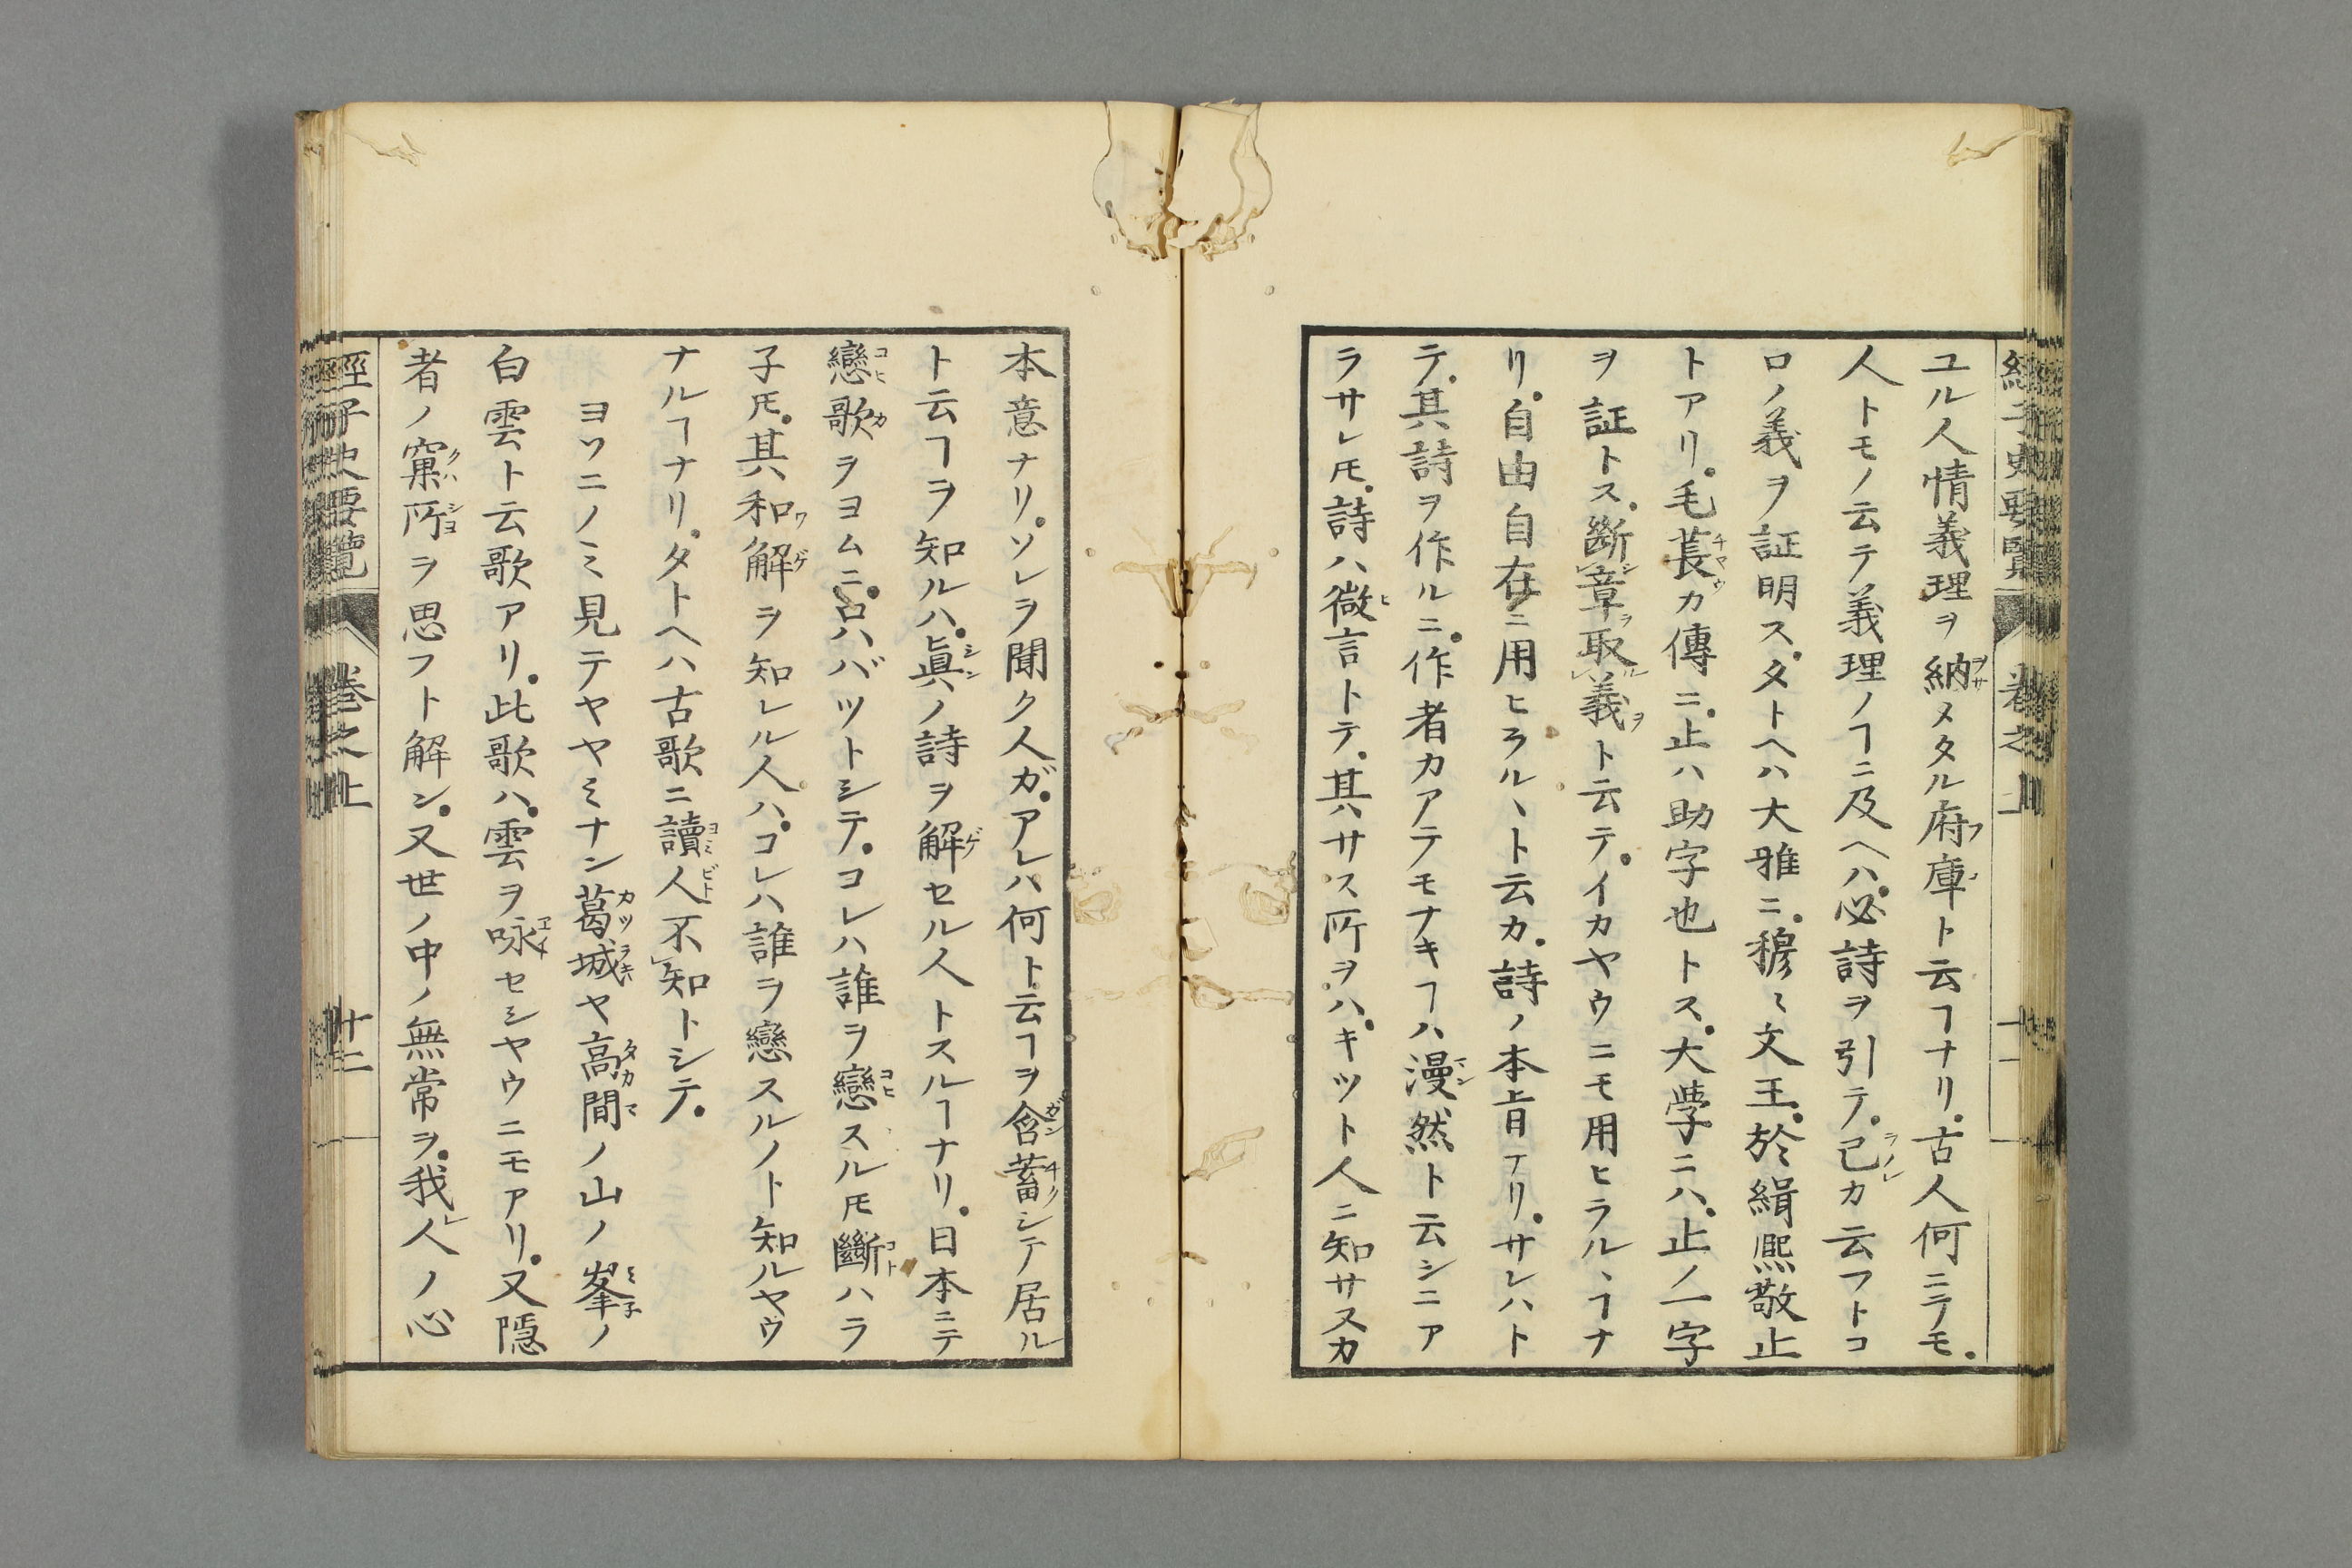 ユル人情義理ヲ納メタル府庫ト云ヿナリ。古人何ニテモ。
人トモノ云テ義理ノヿニ及ヘハ。必詩ヲ引テ。己カ云フトコ
ロノ義ヲ証明ス。タトヘハ大雅ニ。穆〻文王。於緝熙敬止
トアリ。毛萇カ傳ニ。止ハ助字也トス。大學ニハ。止ノ一字
ヲ証トス。斷章取義ト云テ。イカヤウニモ用ヒラルヽヿナ
リ。自由自在ニ用ヒラルヽト云カ。詩ノ本旨ナリ。サレハト
テ。其詩ヲ作ルニ。作者カアテモナキヿハ漫然ト云シニア
ラサレ𪜈。詩ハ微言トテ。其サス所ヲハ。キツト人ニ知サスカ
本意ナリ。ソレヲ聞ク人ガ。アレハ何ト云ヿヲ含蓄シテ居ル
ト云ヿヲ知ルハ。眞ノ詩ヲ解セル人トスルヿナリ。日本ニテ
戀歌ヲヨムニ。口ハバツトシテ。コレハ誰ヲ戀スル𪜈斷ハラ
子𪜈。其和解ヲ知レル人ハ。コレハ誰ヲ戀スルノト知ルヤウ
ナルヿナリ。タトヘハ古歌ニ讀人不知トシテ。
ヨソニノミ見テヤヤミナン葛城ヤ高間ノ山ノ峯ノ
白雲ト云歌アリ。此歌ハ。雲ヲ咏セシヤウニモアリ。又隱
者ノ窠所ヲ思フト解シ。又世ノ中ノ無常ヲ。我人ノ心
經子史要覽 卷之上 十二